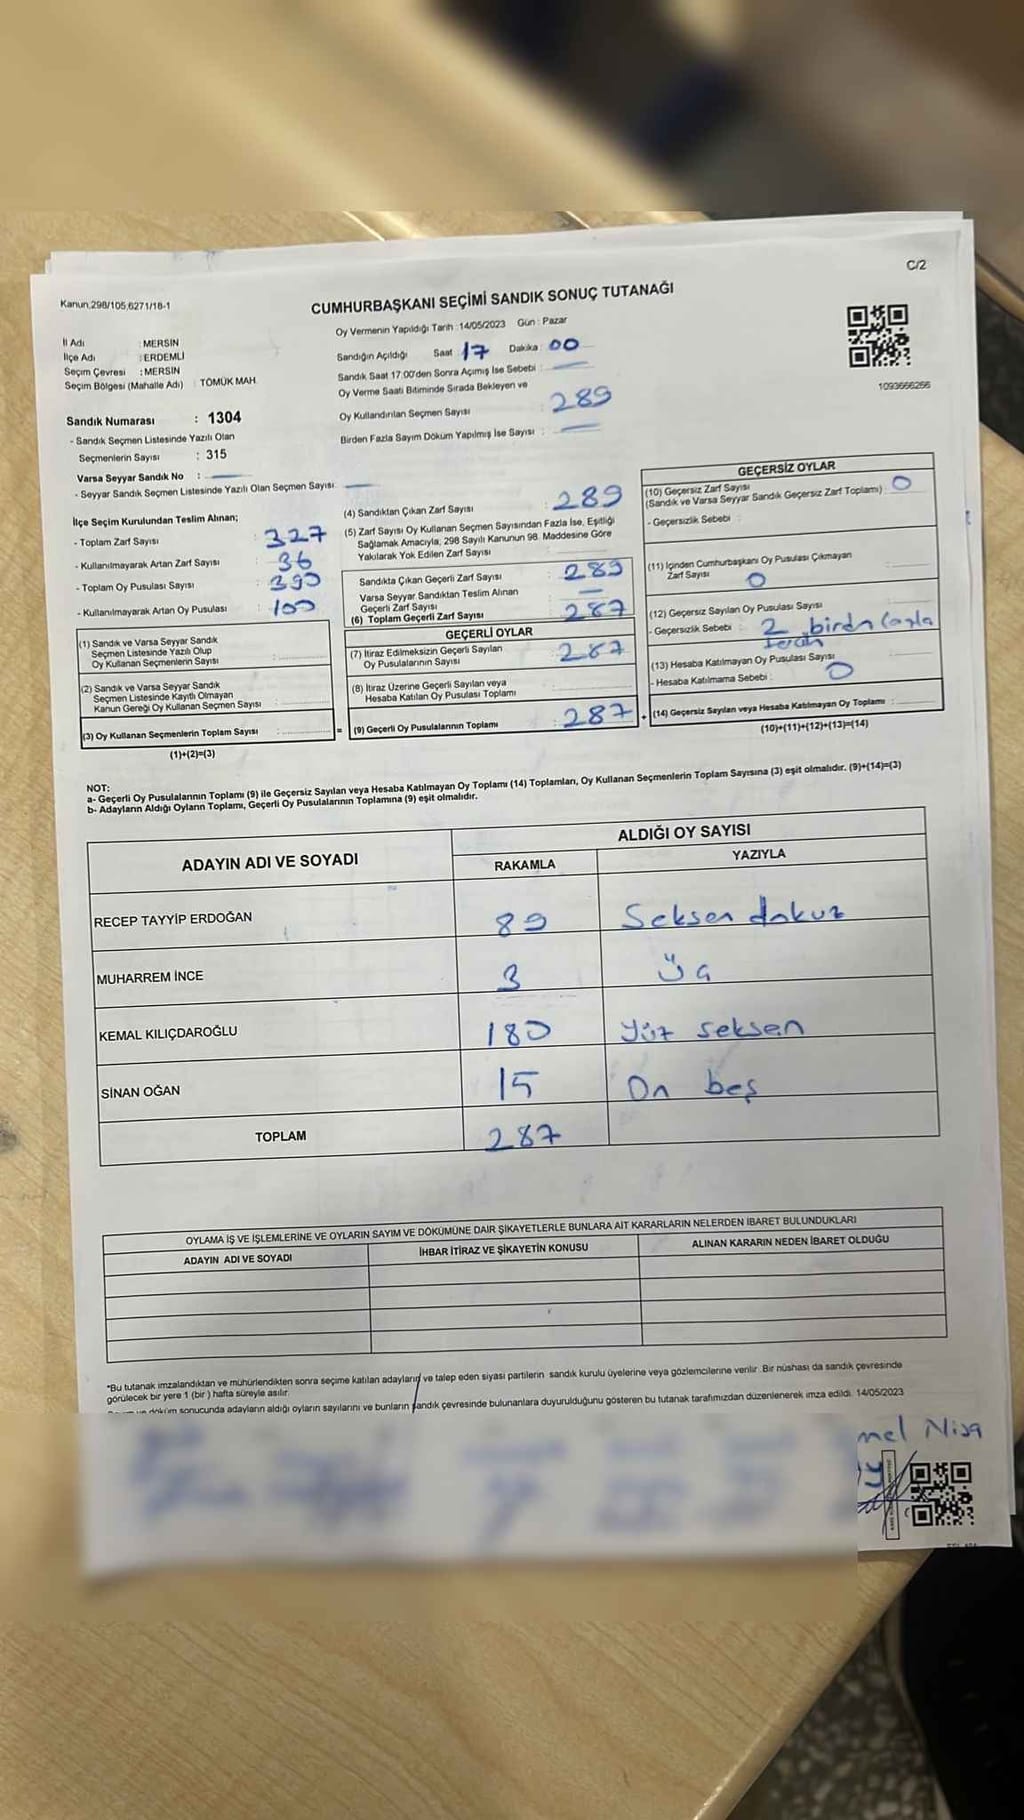 C/2
Kanun,298/105,6271/18-1
CUMHURBAŞKANI SEÇİMİ SANDIK SONUÇ TUTANAĞI
İl Adı : MERSİN
İlçe Adı : ERDEMLİ
Seçim Çevresi : MERSİN
Seçim Bölgesi (Mahalle Adı) : TÖMÜK MAH.
Sandık Numarası : 1304
- Sandık Seçmen Listesinde Yazılı Olan
Seçmenlerin Sayısı : 315
Varsa Seyyar Sandık No :
- Seyyar Sandık Seçmen Listesinde Yazılı Olan Seçmen Sayısı
Oy Vermenin Yapıldığı Tarih : 14/05/2023 Gün : Pazar
Sandığın Açıldığı Saat 17 Dakika : 00
Sandık Saat 17:00'den Sonra Açımış İse Sebebi :
Oy Verme Saati Bitiminde Sırada Bekleyen ve
Oy Kullandırılan Seçmen Sayısı : 289
Birden Fazla Sayım Döküm Yapılmış İse Sayısı :
1093666266
İlçe Seçim Kurulundan Teslim Alınan;
- Toplam Zarf Sayısı : 327
- Kullanılmayarak Artan Zarf Sayısı : 36
- Toplam Oy Pusulası Sayısı : 390
- Kullanılmayarak Artan Oy Pusulası : 100
(1) Sandık ve Varsa Seyyar Sandık
Seçmen Listesinde Yazılı Olup
Oy Kullanan Seçmenlerin Sayısı :
(2) Sandık ve Varsa Seyyar Sandık
Seçmen Listesinde Kayıtlı Olmayan
Kanun Gereği Oy Kullanan Seçmen Sayısı :
(3) Oy Kullanan Seçmenlerin Toplam Sayısı :
(1)+(2)=(3)
(4) Sandıktan Çıkan Zarf Sayısı : 289
(5) Zarf Sayısı Oy Kullanan Seçmen Sayısından Fazla İse, Eşitliği
Sağlamak Amacıyla; 298 Sayılı Kanunun 98. Maddesine Göre
Yakılarak Yok Edilen Zarf Sayısı :
Sandıkta Çıkan Geçerli Zarf Sayısı : 289
Varsa Seyyar Sandıktan Teslim Alınan
Geçerli Zarf Sayısı :
(6) Toplam Geçerli Zarf Sayısı : 287
GEÇERLİ OYLAR
(7) İtiraz Edilmeksizin Geçerli Sayılan
Oy Pusulalarının Sayısı : 287
(8) İtiraz Üzerine Geçerli Sayılan veya
Hesaba Katılan Oy Pusulası Toplamı :
= (9) Geçerli Oy Pusulalarının Toplamı : 287
GEÇERSİZ OYLAR
(10) Geçersiz Zarf Sayısı
(Sandık ve Varsa Seyyar Sandık Geçersiz Zarf Toplamı) : 0
- Geçersizlik Sebebi :
(11) İçinden Cumhurbaşkanı Oy Pusulası Çıkmayan
Zarf Sayısı : 0
(12) Geçersiz Sayılan Oy Pusulası Sayısı :
- Geçersizlik Sebebi : 2 birden fazla
(13) Hesaba Katılmayan Oy Pusulası Sayısı :
- Hesaba Katılmama Sebebi : 0
+ (14) Geçersiz Sayılan veya Hesaba Katılmayan Oy Toplamı :
(10)+(11)+(12)+(13)=(14)
NOT:
a- Geçerli Oy Pusulalarının Toplamı (9) ile Geçersiz Sayılan veya Hesaba Katılmayan Oy Toplamı (14) Toplamları, Oy Kullanan Seçmenlerin Toplam Sayısına (3) eşit olmalıdır. (9)+(14)=(3)
b- Adayların Aldığı Oyların Toplamı, Geçerli Oy Pusulalarının Toplamına (9) eşit olmalıdır.
ADAYIN ADI VE SOYADI
ALDIĞI OY SAYISI
RAKAMLA YAZIYLA
RECEP TAYYİP ERDOĞAN 89 Seksen dokuz
MUHARREM İNCE 3 Üç
KEMAL KILIÇDAROĞLU 180 Yüz seksen
SİNAN OĞAN 15 On beş
TOPLAM 287
OYLAMA İŞ VE İŞLEMLERİNE VE OYLARIN SAYIM VE DÖKÜMÜNE DAİR ŞİKAYETLERLE BUNLARA AİT KARARLARIN NELERDEN İBARET BULUNDUKLARI
ADAYIN ADI VE SOYADI İHBAR İTİRAZ VE ŞİKAYETİN KONUSU ALINAN KARARIN NEDEN İBARET OLDUĞU
*Bu tutanak imzalandıktan ve mühürlendikten sonra seçime katılan adayların ve talep eden siyasi partilerin sandık kurulu üyelerine veya gözlemcilerine verilir. Bir nüshası da sandık çevresinde
görülecek bir yere 1 (bir ) hafta süreyle asılır.
döküm sonucunda adayların aldığı oyların sayılarını ve bunların sandık çevresinde bulunanlara duyurulduğunu gösteren bu tutanak tarafımızdan düzenlenerek imza edildi. 14/05/2023
mel Nisa